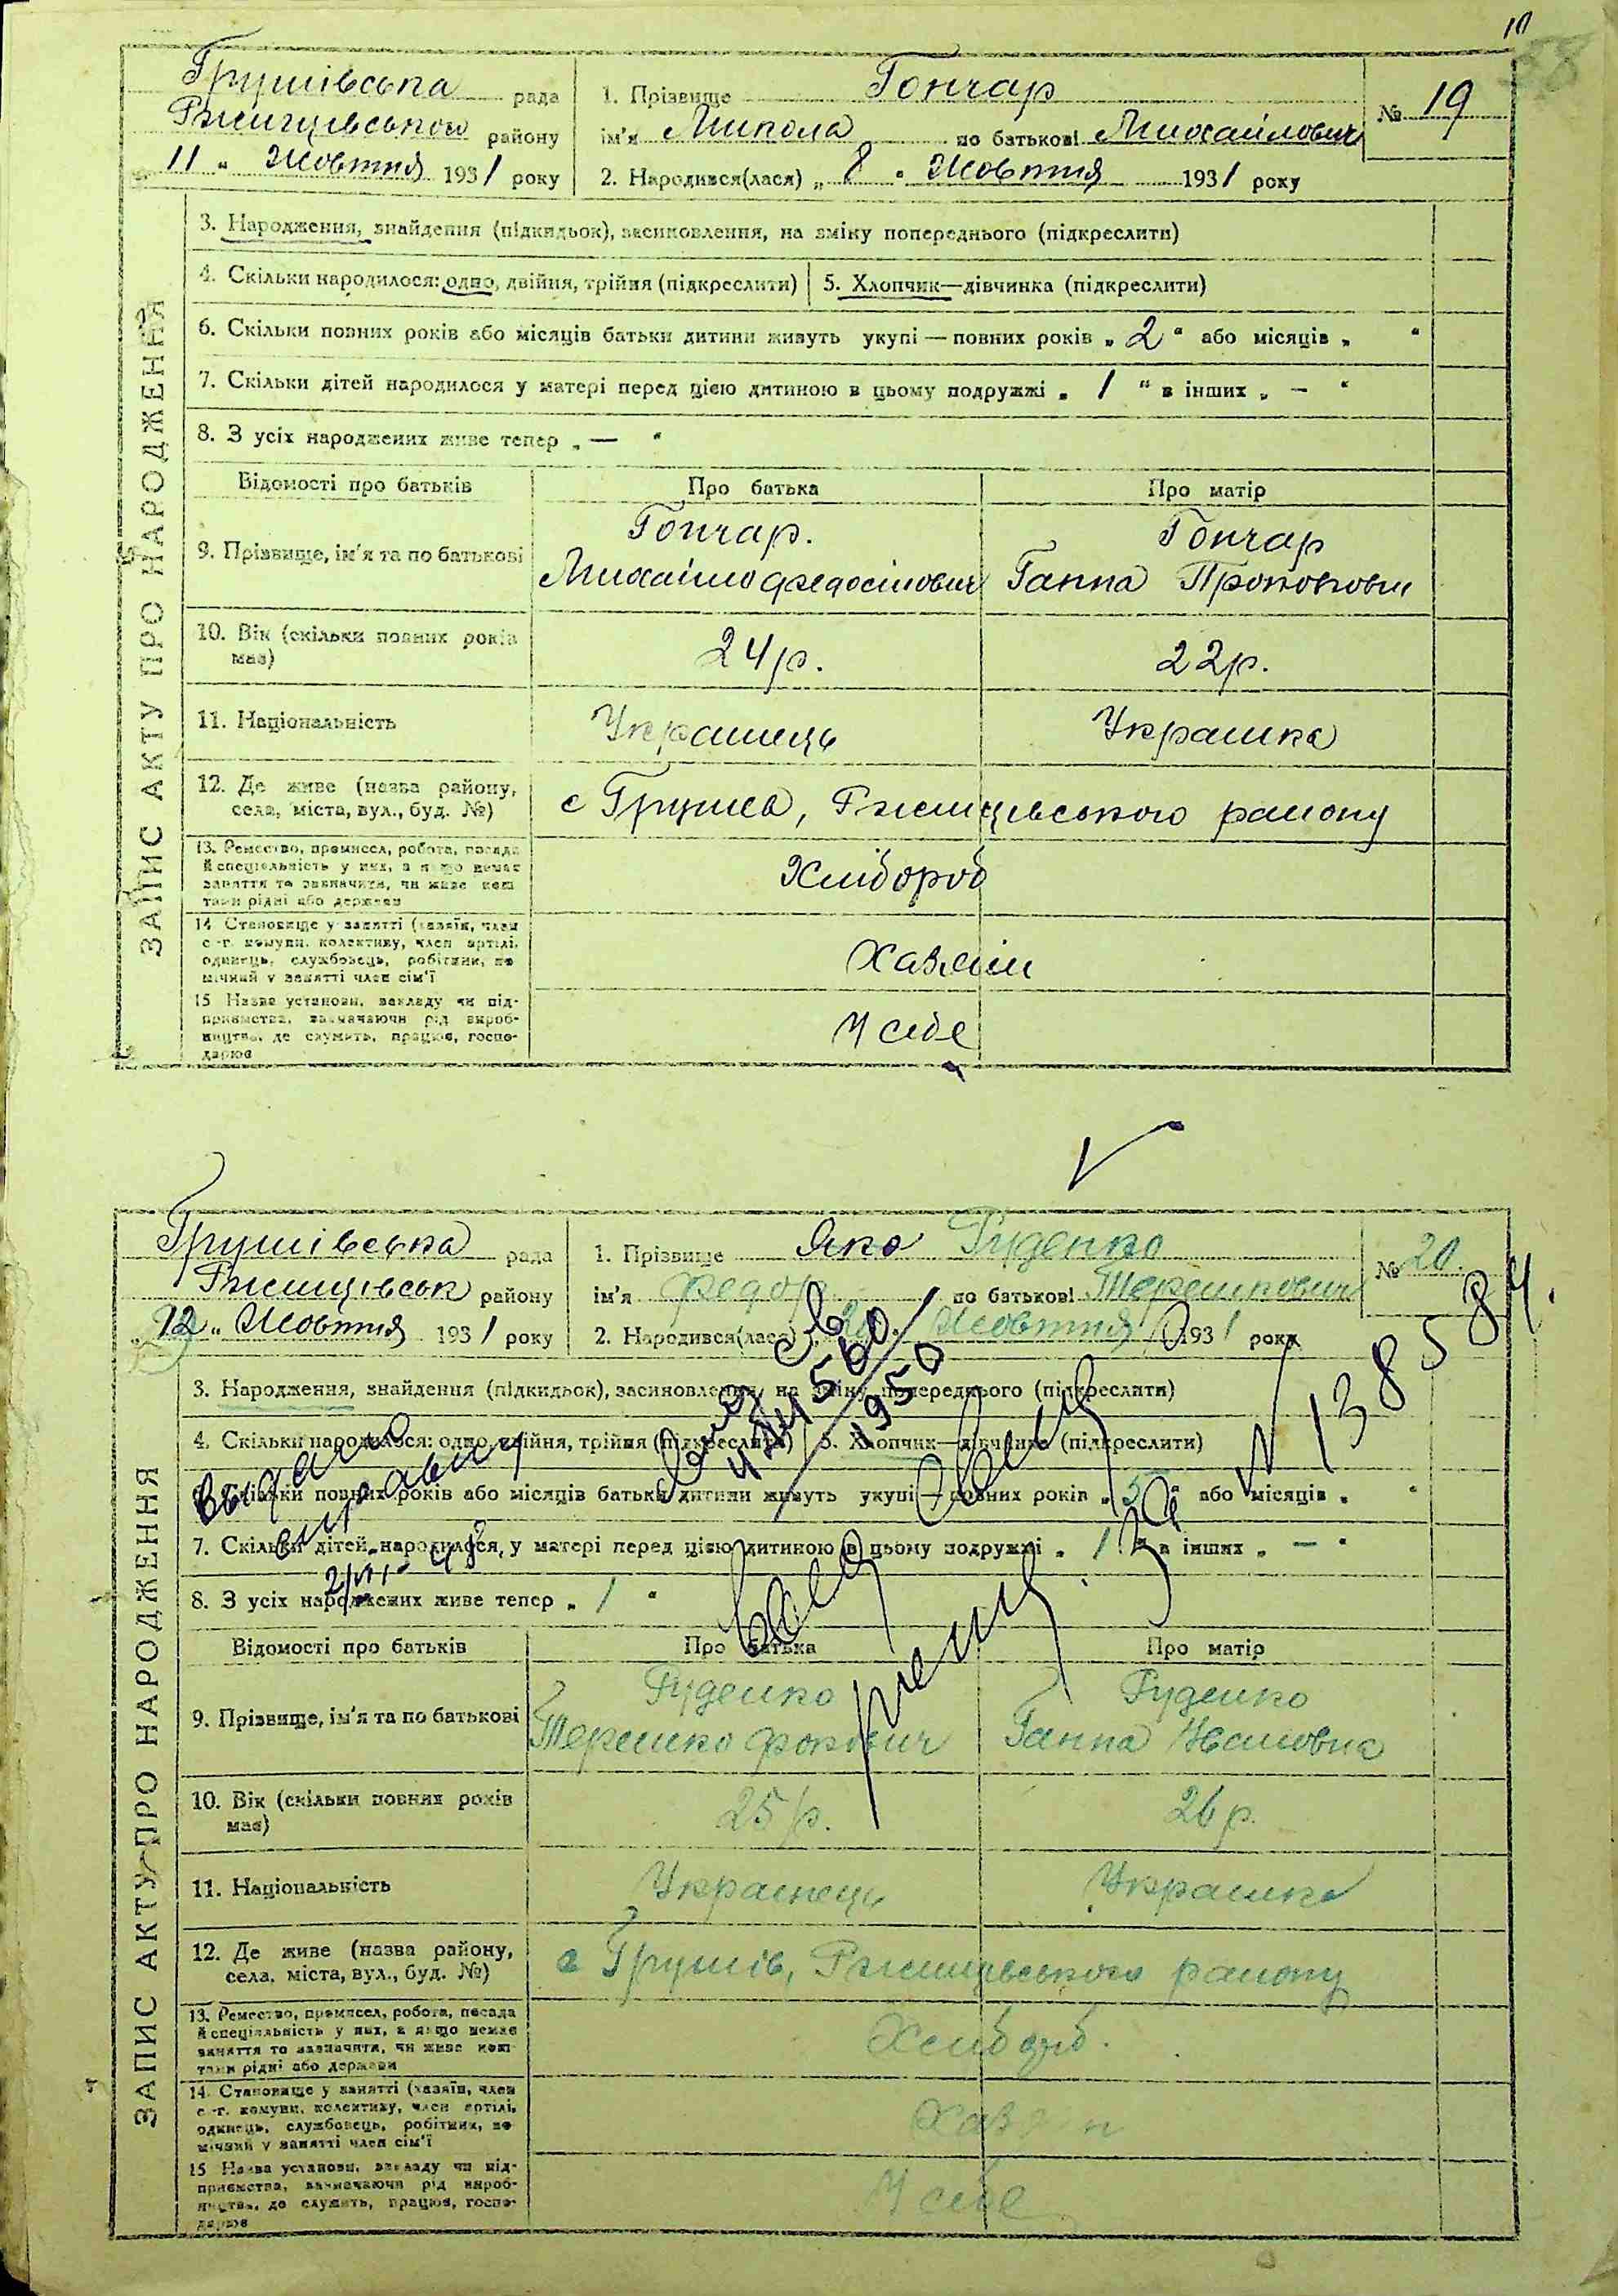 10
38
Грушівська рада
Ржищівського району
"11" Жовтня 1931 року
1. Прізвище Гончар
ім'я Микола по батькові Михайлович
2. Народився(лася) "8" Жовтня 1931 року
№ 19
ЗАПИС АКТУ ПРО НАРОДЖЕННЯ
3. Народження, знайдення (підкидьок), засиновлення, на зміну попереднього (підкреслити)
4. Скільки народилося: одно, двійня, трійня (підкреслити)
5. Хлопчик—дівчинка (підкреслити)
6. Скільки повних років або місяців батьки дитини живуть укупі — повних років „ 2 " або місяців „ "
7. Скільки дітей народилося у матері перед цією дитиною в цьому подружжі „ 1 " в інших „ – "
8. З усіх народжених живе тепер „ — "
Відомості про батьків Про батька Про матір
9. Прізвище, ім'я та по батькові
Гончар.
Михайло Федосійович
Гончар
Ганна
10. Вік (скільки повних років має)
24 р. 22 р.
11. Національність Українець Українка
12. Де живе (назва району,
села, міста, вул., буд. №)
с Грушев, Ржищівського району
13. Ремество, промисел, робота, посада
й спеціяльність у них, а якщо немає
заняття то зазначити, чи живе кош-
тами рідні або держави
Хлібороб
14. Становище у занятті (хазяїн, член
с.-г. комуни, колективу, член артілі,
одинець, службовець, робітник, по-
мічний у занятті член сім'ї
Хазяїн
15 Назва установи, закладу чи під-
приємства, зазначаючи рід вироб-
ництва, де служить, працює, госпо-
дарює
У себе
Грушівська рада
Ржищівськ району
"12" Жовтня 1931 року
1. Прізвище Руденко
ім'я Федор по батькові Терешкович
2. Народився(лася) Жовтня 1931 року
№ 20.
ЗАПИС АКТУ ПРО НАРОДЖЕННЯ
3. Народження, знайдення (підкидьок), засиновлення, на зміну попереднього (підкреслити)
4. Скільки народилося: одно, двійня, трійня (підкреслити)
5. Хлопчик—дівчинка (підкреслити)
6. Скільки повних років або місяців батьки дитини живуть укупі — повних років „ 5 " або місяців „ "
7. Скільки дітей народилося у матері перед цією дитиною в цьому подружжі „ 1 " в інших „ – "
8. З усіх народжених живе тепер „ 1 "
1950
Відомості про батьків Про батька Про матір
9. Прізвище, ім'я та по батькові
Руденко
Терешко Фокович
Руденко
Ганна
10. Вік (скільки повних років має)
25 р. 26 р.
11. Національність Українець Українка
12. Де живе (назва району,
села, міста, вул., буд. №)
с Грушів, Ржищівського району
13. Ремество, промисел, робота, посада
й спеціяльність у них, а якщо немає
заняття то зазначити, чи живе кош-
тами рідні або держави
Хлібороб.
14. Становище у занятті (хазяїн, член
с.-г. комуни, колективу, член артілі,
одинець, службовець, робітник, по-
мічний у занятті член сім'ї
Хазяїн
15 Назва установи, закладу чи під-
приємства, зазначаючи рід вироб-
ництва, де служить, працює, госпо-
дарює
У себе